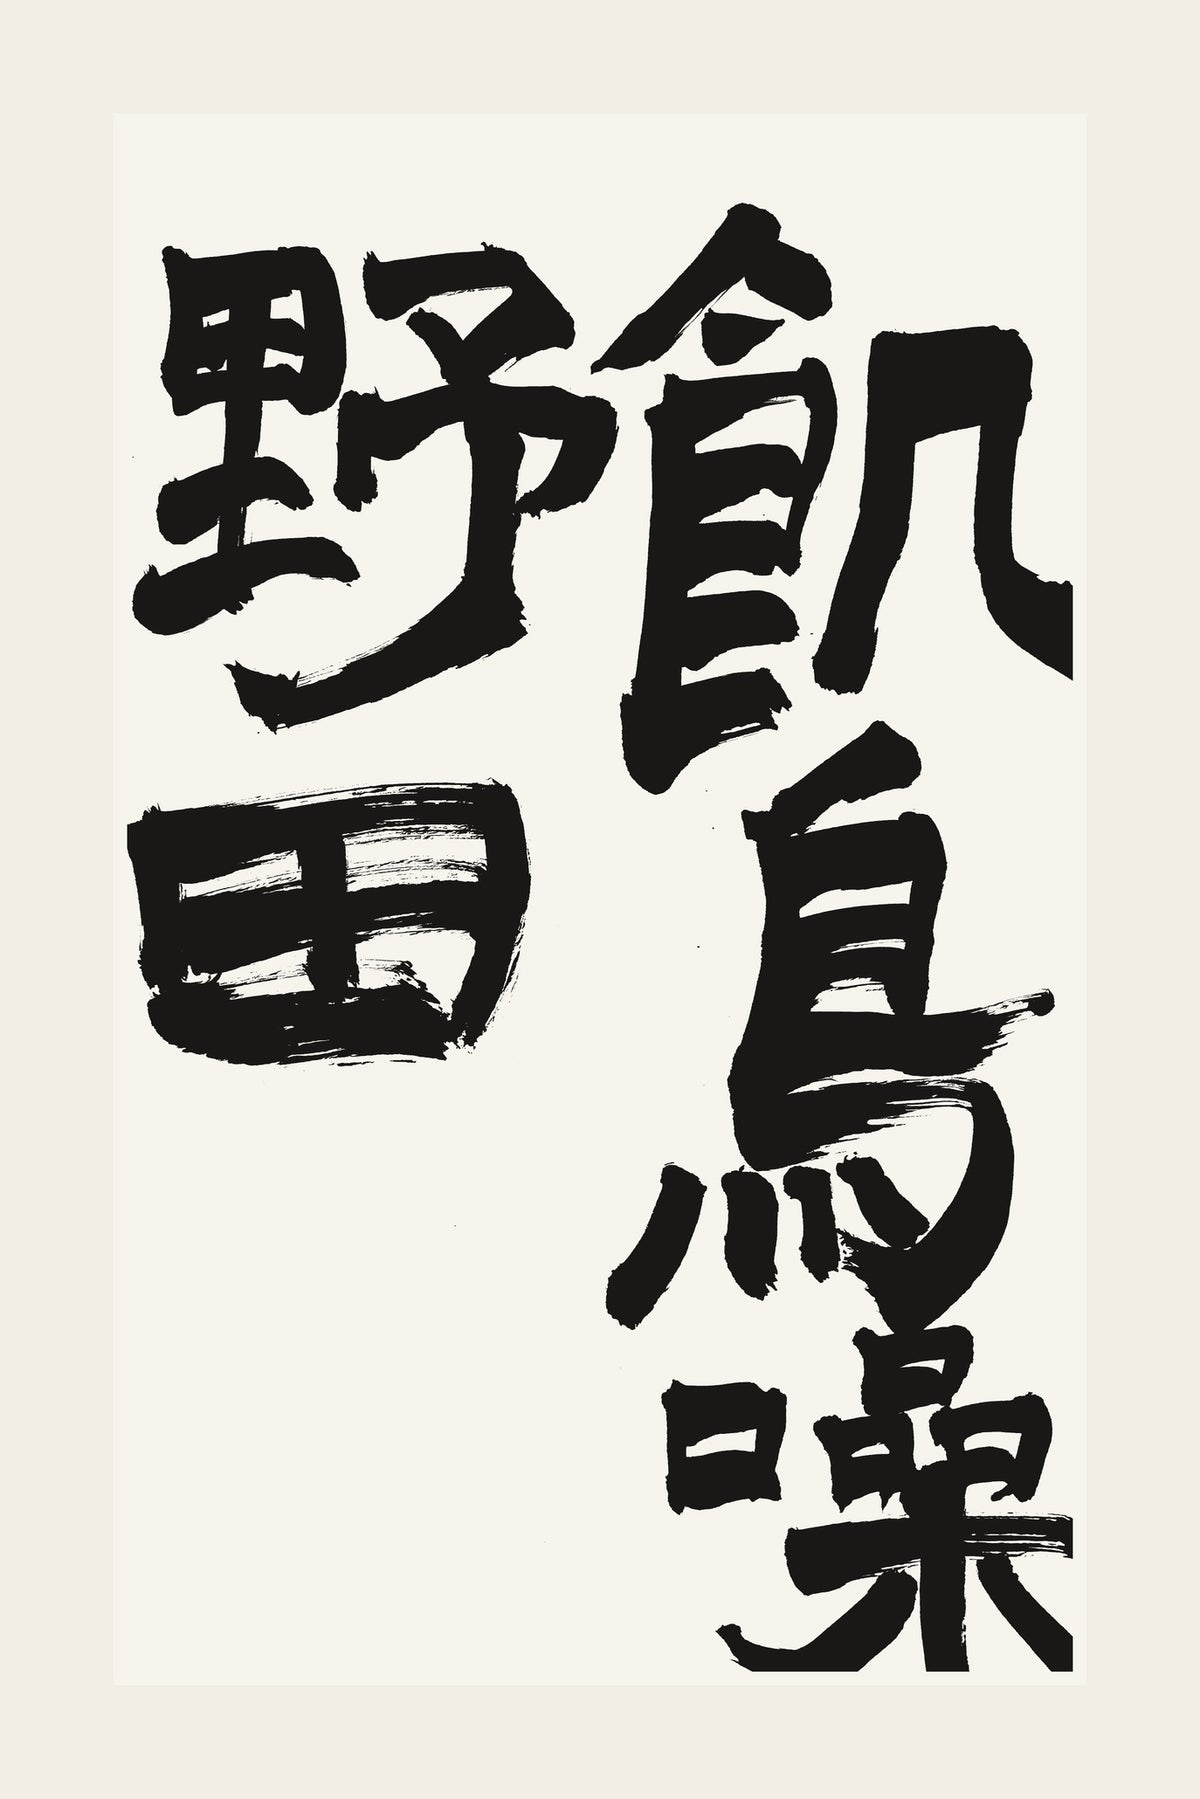 飢鳥噪
野田